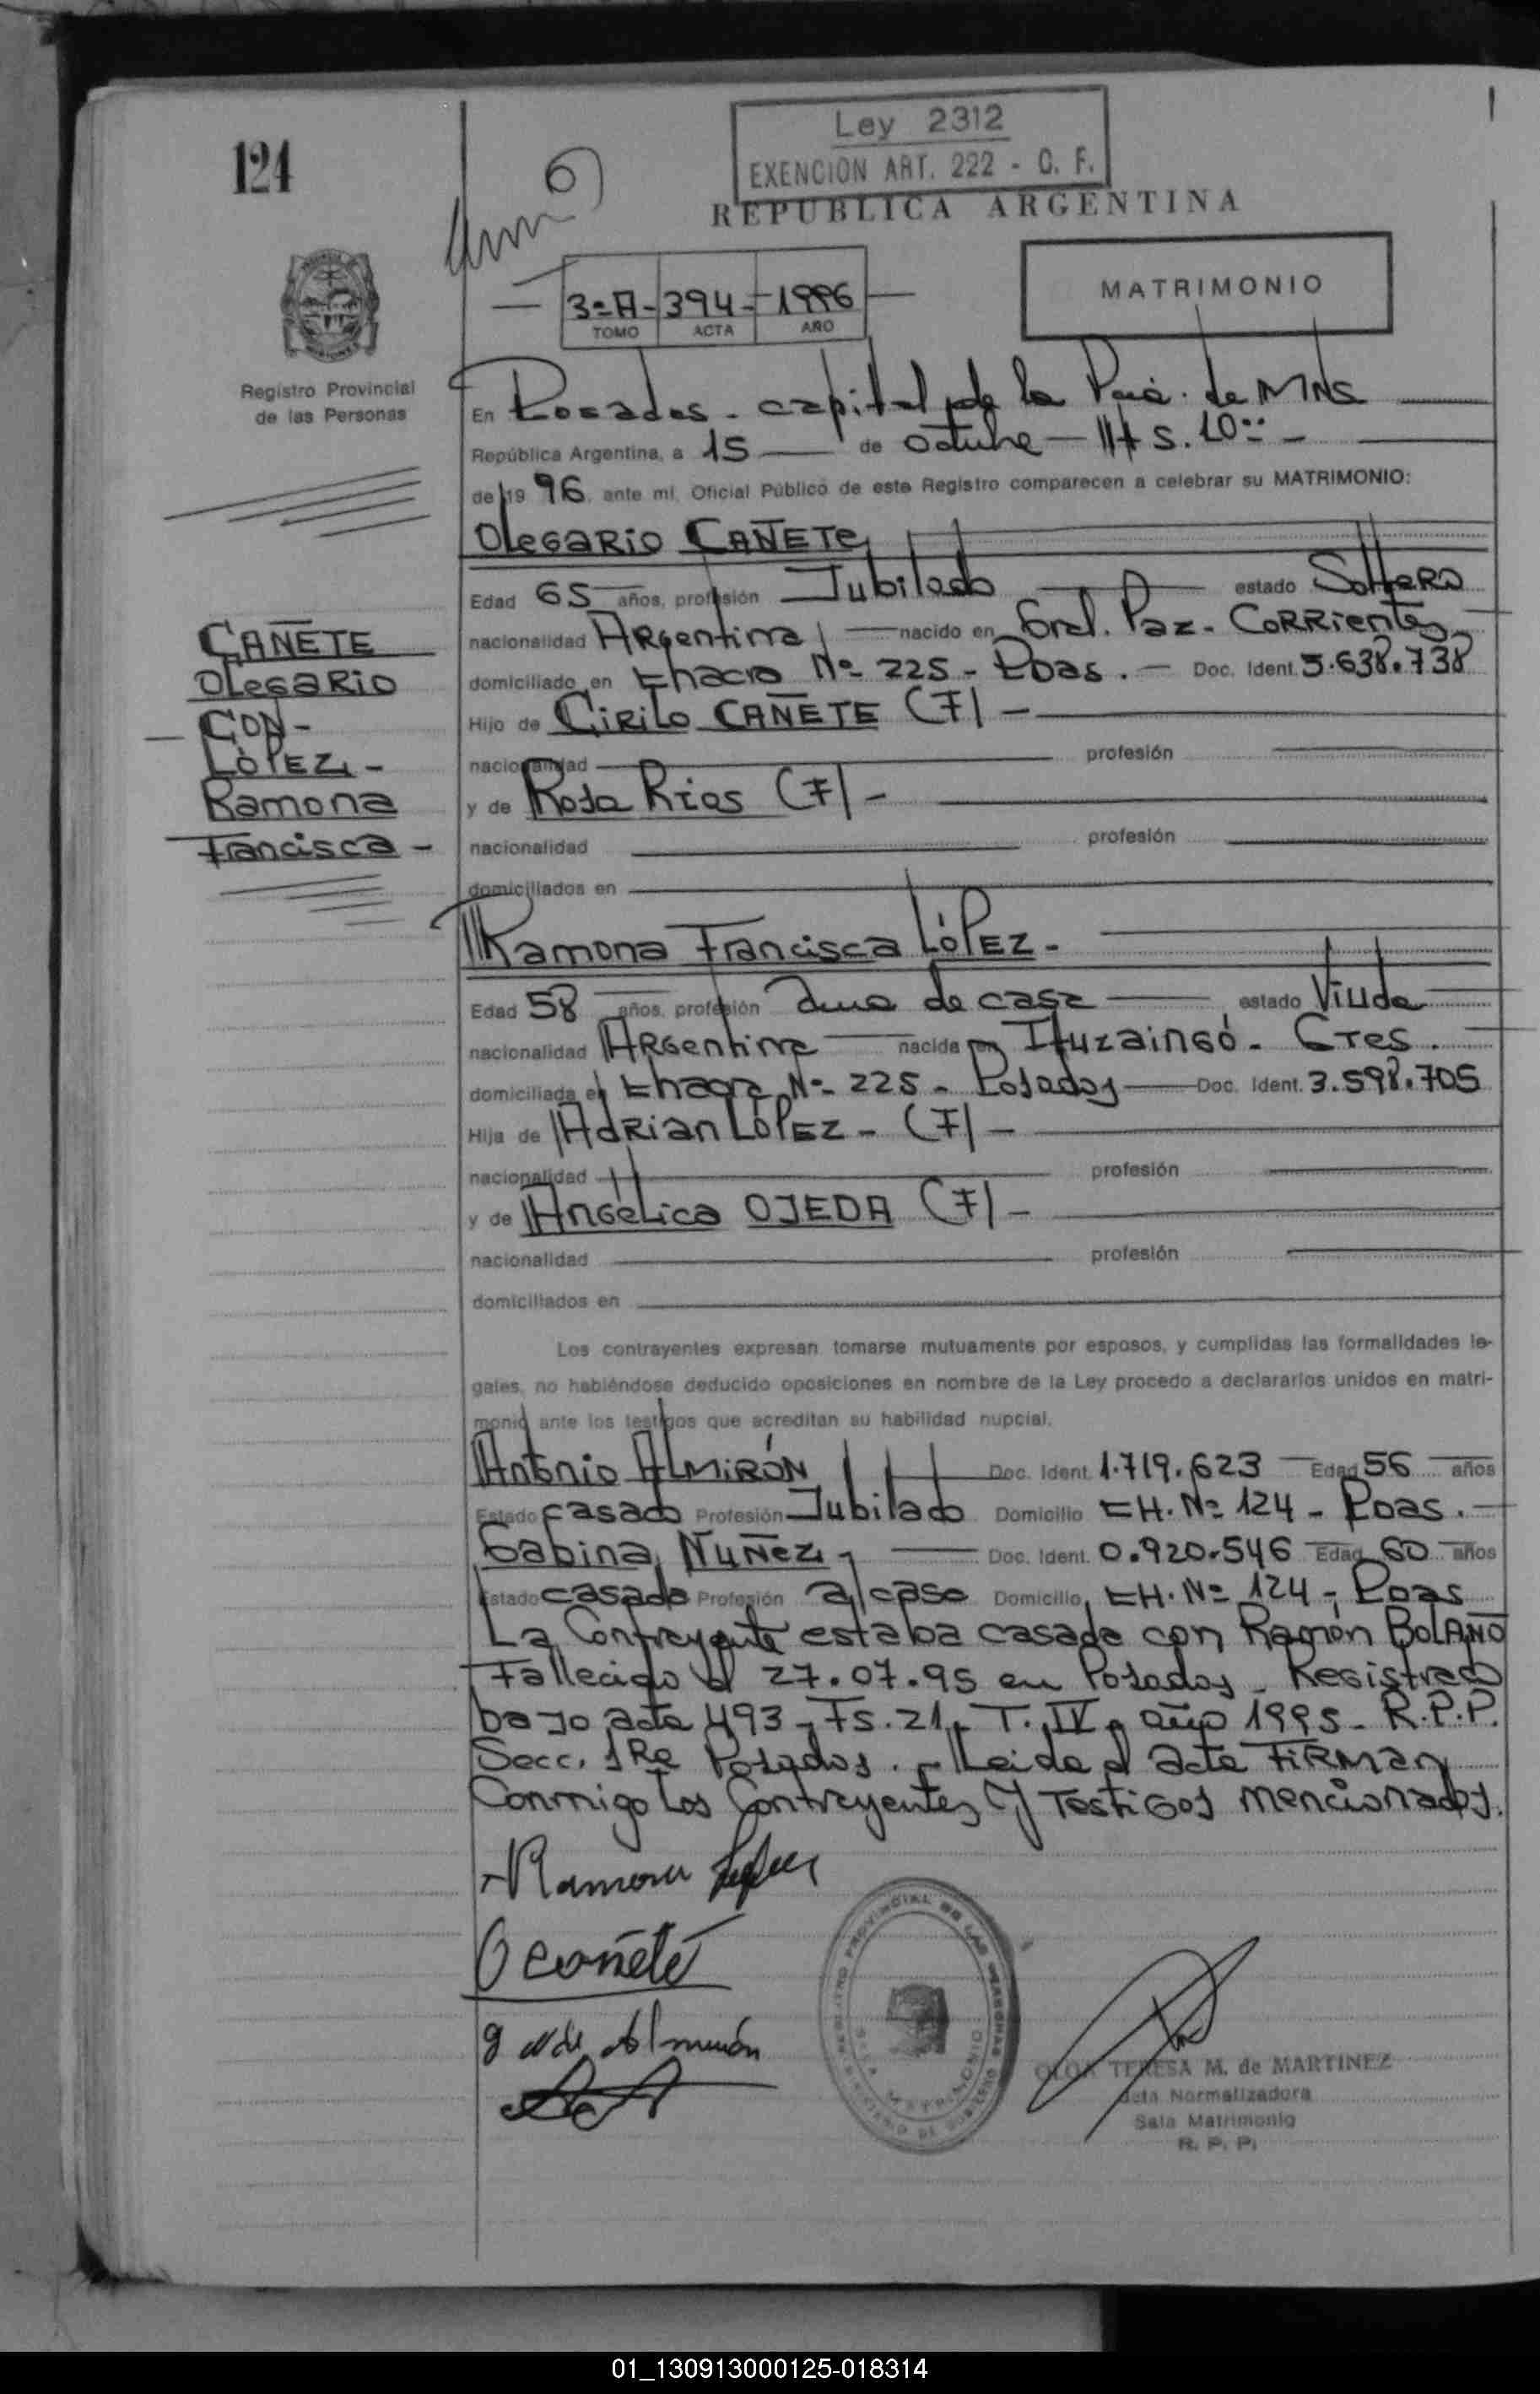 Ley 2312
EXENCION ART. 222 - C. F.
124
REPUBLICA ARGENTINA
MATRIMONIO
3=A- 394- 1996
TOMO ACTA AÑO
Registro Provincial
de las Personas
En Posadas - capital de la Pcia. de MNS
República Argentina, a 15 de octubre - Hs. 10:
de 19 96 ante mí, Oficial Público de este Registro comparecen a celebrar su MATRIMONIO:
Olegario CAÑETE
Edad 65 años, profesión Jubilado estado Soltero
nacionalidad Argentina nacido en Gral. Paz - Corrientes
domiciliado en Chacra Nº 225 - Pdas. - Doc. Ident. 5.638.738
Hijo de Cirilo CAÑETE (F) -
nacionalidad profesión
y de Rosa Rios (F) -
nacionalidad profesión
domiciliados en
CAÑETE
Olegario
CON -
LÓPEZ -
Ramona
Francisca -
Ramona Francisca LÓPEZ -
Edad 58 años, profesión Ama de casa estado Viuda
nacionalidad Argentina nacida en Ituzaingó - Ctes.
domiciliada en Chacra Nº 225 - Posadas Doc. Ident. 3.598.705
Hija de Adrian LÓPEZ - (F) -
nacionalidad profesión
y de Angélica OJEDA (F) -
nacionalidad profesión
domiciliados en
Los contrayentes expresan tomarse mutuamente por esposos, y cumplidas las formalidades le-
gales, no habiéndose deducido oposiciones en nombre de la Ley procedo a declararlos unidos en matri-
monio ante los testigos que acreditan su habilidad nupcial.
Antonio ALMIRÓN Doc. Ident. 1.719.623 Edad 56 años
Estado casado Profesión Jubilado Domicilio CH. Nº 124 - Pdas. -
Sabina NUÑEZ - Doc. Ident. 0.920.546 Edad 60 años
Estado casada Profesión a/casa Domicilio CH. Nº 124 - Pdas
La Contrayente estaba casada con Ramón BOLAÑO
Fallecido el 27.07.95 en Posadas - Registrado
bajo acta 493 - Fs. 21 - T. IV - año 1995 - R.P.P.
Secc. 1ra Posadas. - Leida el acta FIRMAN
Conmigo los Contrayentes y Testigos mencionados.
Ramona Lopez
O cañete
Almirón
REGISTRO PROVINCIAL DE LAS PERSONAS
SALA MATRIMONIO
TERESA M. de MARTINEZ
Normalizadora
Sala Matrimonio
R. P. P.
01_130913000125-018314